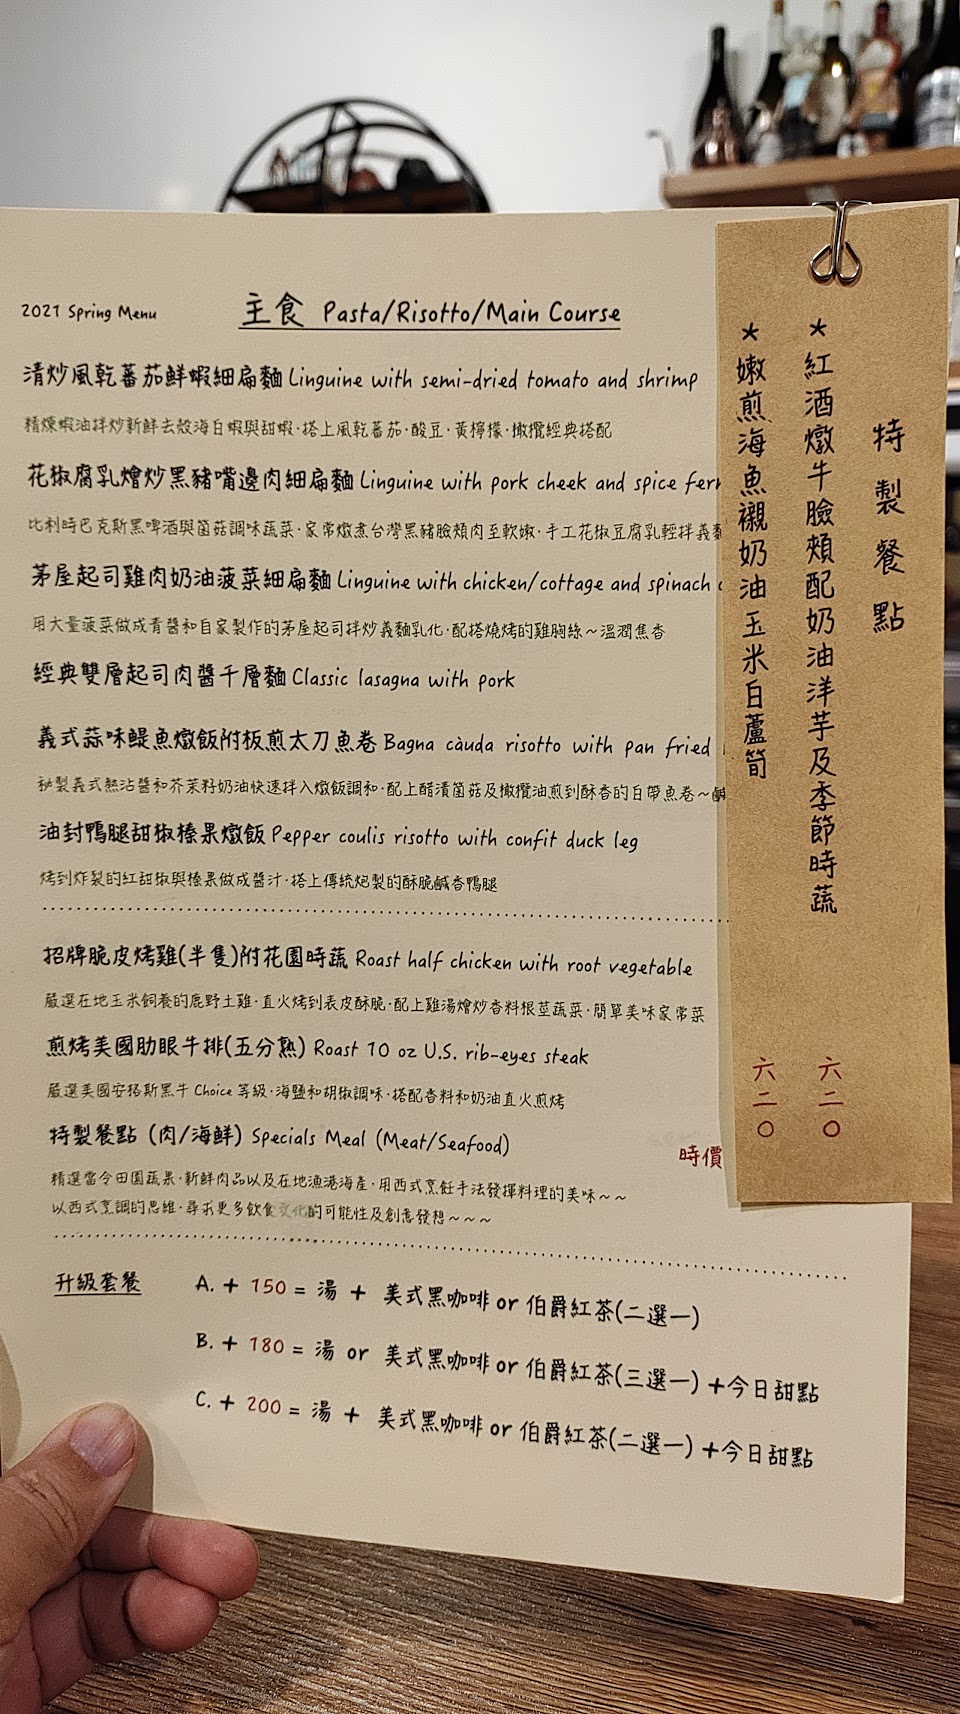 2021 Spring Menu
主食 Pasta/Risotto/Main Course
清炒風乾蕃茄鮮蝦細扁麵 Linguine with semi-dried tomato and shrimp
精煉蝦油拌炒新鮮去殼海白蝦與甜蝦·搭上風乾蕃茄·酸豆·黃檸檬·橄欖經典搭配
花椒腐乳燴炒黑豬嘴邊肉細扁麵 Linguine with pork cheek and spice
比利時巴克斯黑啤酒與菌菇調味蔬菜·家常燉煮台灣黑豬臉頰肉至軟嫩·手工花椒豆腐乳輕拌義
茅屋起司雞肉奶油菠菜細扁麵 Linguine with chicken/cottage and spinach
用大量菠菜做成青醬和自家製作的茅屋起司拌炒義麵乳化·配搭燒烤的雞胸絲～溫潤焦香
經典雙層起司肉醬千層麵 Classic lasagna with pork
義式蒜味鯷魚燉飯附板煎太刀魚卷 Bagna càuda risotto with pan fried
秘製義式熱沾醬和芥茉籽奶油快速拌入燉飯調和·配上醋漬菌菇及橄欖油煎到酥香的白帶魚卷～
油封鴨腿甜椒榛果燉飯 Pepper coulis risotto with confit duck leg
烤到炸裂的紅甜椒與榛果做成醬汁·搭上傳統炮製的酥脆鹹香鴨腿
招牌脆皮烤雞(半隻)附花園時蔬 Roast half chicken with root vegetable
嚴選在地玉米飼養的鹿野土雞·直火烤到表皮酥脆·配上雞湯燴炒香料根莖蔬菜·簡單美味家常菜
煎烤美國肋眼牛排(五分熟) Roast 10 oz U.S. rib-eyes steak
嚴選美國安格斯黑牛 Choice 等級·海鹽和胡椒調味·搭配香料和奶油直火煎烤
特製餐點 (肉/海鮮) Specials Meal (Meat/Seafood)
時價
精選當令田園蔬果·新鮮肉品以及在地漁港海產·用西式烹飪手法發揮料理的美味～～
以西式烹調的思維·尋求更多飲食文化的可能性及創意發想～～～
升級套餐
A. + 150 = 湯 + 美式黑咖啡 or 伯爵紅茶(二選一)
B. + 180 = 湯 or 美式黑咖啡 or 伯爵紅茶(三選一) +今日甜點
C. + 200 = 湯 + 美式黑咖啡 or 伯爵紅茶(二選一) +今日甜點
特製餐點
＊紅酒燉牛臉頰配奶油洋芋及季節時蔬 六二〇
＊嫩煎海魚襯奶油玉米白蘆筍 六二〇